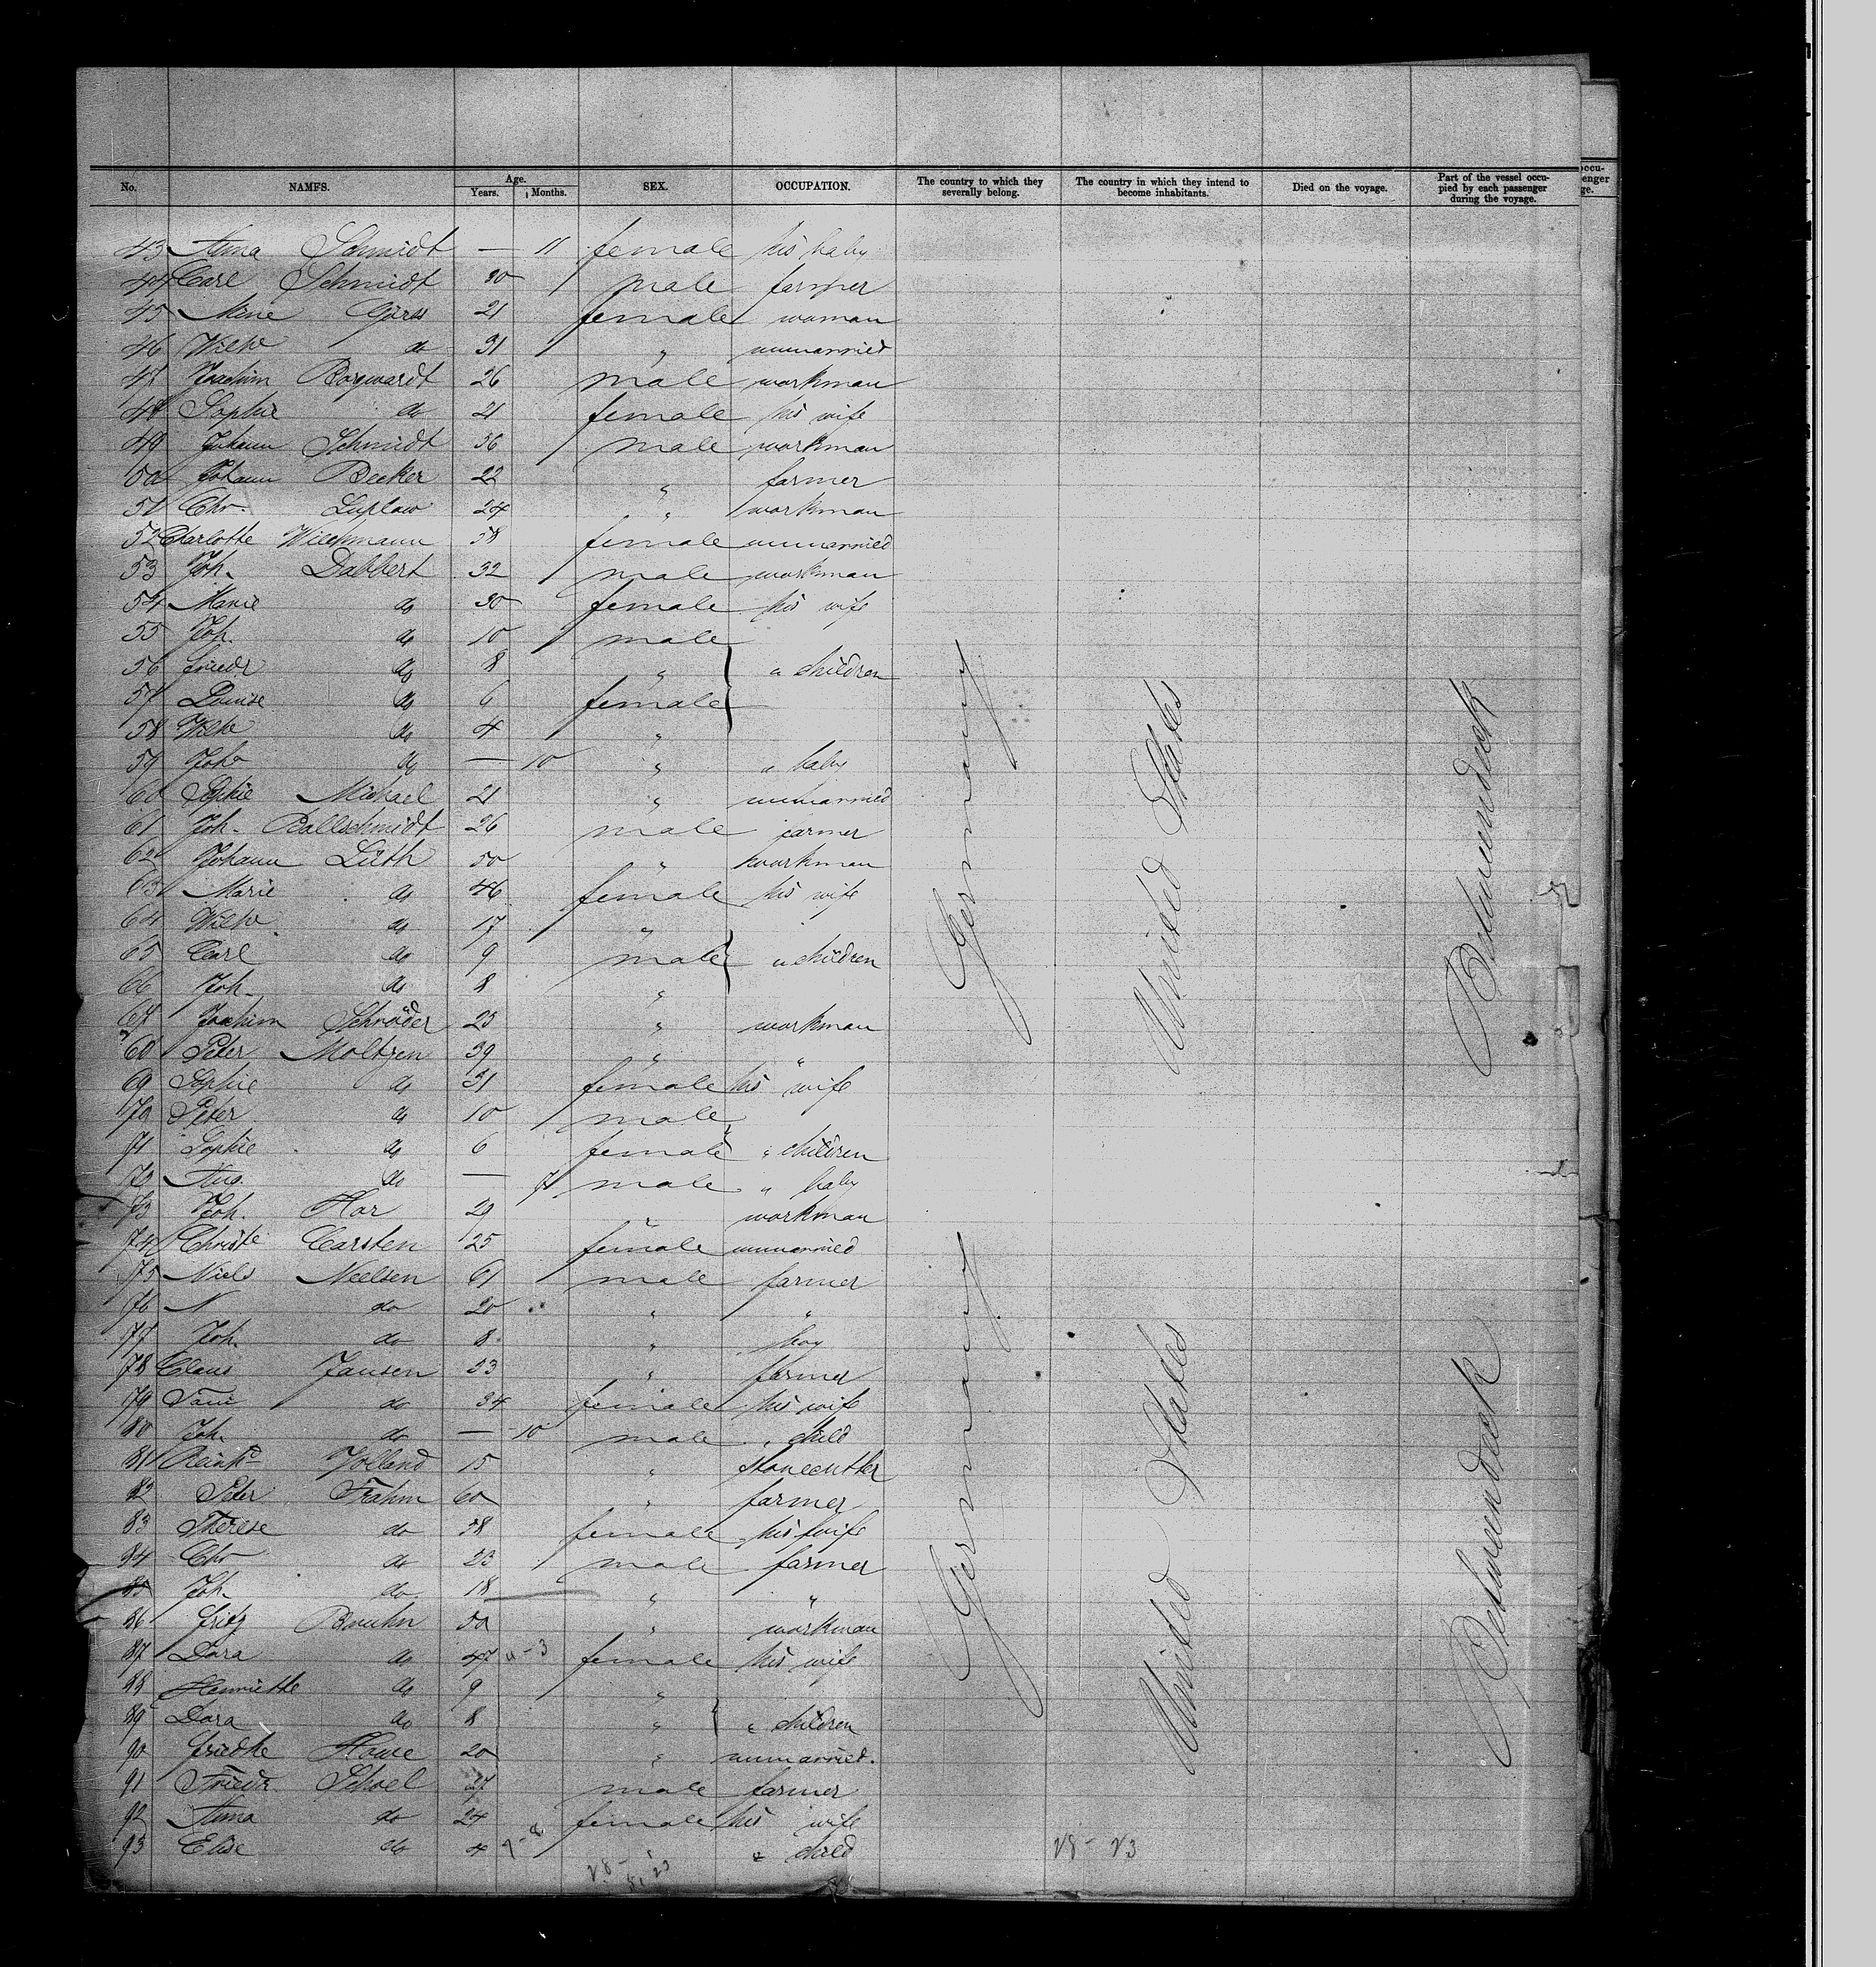 No. NAMES. Age. Years. Months. SEX. OCCUPATION. The country to which they severally belong. The country in which they intend to become inhabitants. Died on the voyage. Part of the vessel occupied by each passenger during the voyage.
43 Anna Schmidt — 11 female his baby
44 Carl Schmidt 30 male farmer
45 Mine Görss 21 female woman
46 Wilhe do 31 " unmarried
47 Joachim Borgwardt 26 male workman
48 Sophie do 21 female his wife
49 Johann Schmidt 36 male workman
50 Johann Becker 22 " farmer
51 Chr. Luplow 24 " workman
52 Charlotte Wiechmann 58 female unmarried
53 Joh. Dabbert 32 male workman
54 Marie do 30 female his wife
55 Joh. do 10 male
56 Friedr do 8 " " children
57 Louise do 6 female
58 Wilhe do 4 "
59 Joha do — 10 " " baby
60 Sophie Michael 21 " unmarried
61 Joh. Ballschmidt 26 male farmer
62 Johann Lüth 50 " workman
63 Marie do 46 female his wife
64 Wilhe do 17 "
65 Carl do 9 male " children
66 Joh. do 8 "
67 Joachim Schröder 25 " workman
68 Peter Moltzen 39 " "
69 Sophie do 31 female his wife
70 Peter do 10 male
71 Sophie do 6 female " children
72 Aug. do — male " baby
73 Joh. Hor 29 " workman
74 Christe Carsten 25 female unmarried
75 Niels Neelsen 61 male farmer
76 N do 20 " "
77 Joh. do 8 " boy
78 Claus Jansen 33 " farmer
79 do 34 female his wife
80 Joh. do — 10 male " child
81 Reinhd Jolland 15 " stonecutter
82 Peter Frahm 60 " farmer
83 Therese do 58 female his wife
84 Chr do 23 male farmer
85 Joh. do 18 " "
86 Fritz Bruhn 50 " workman
87 Dora do 47 female his wife
88 Henriette do 9 "
89 Dora do 8 " " children
90 Friedke Howe 20 " unmarried.
91 Friedr. Schoel 27 male farmer
92 Anna do 24 female his wife
93 Elise do 4 " child
Germany
United States
Betweendeck
Germany
United States
Betweendeck